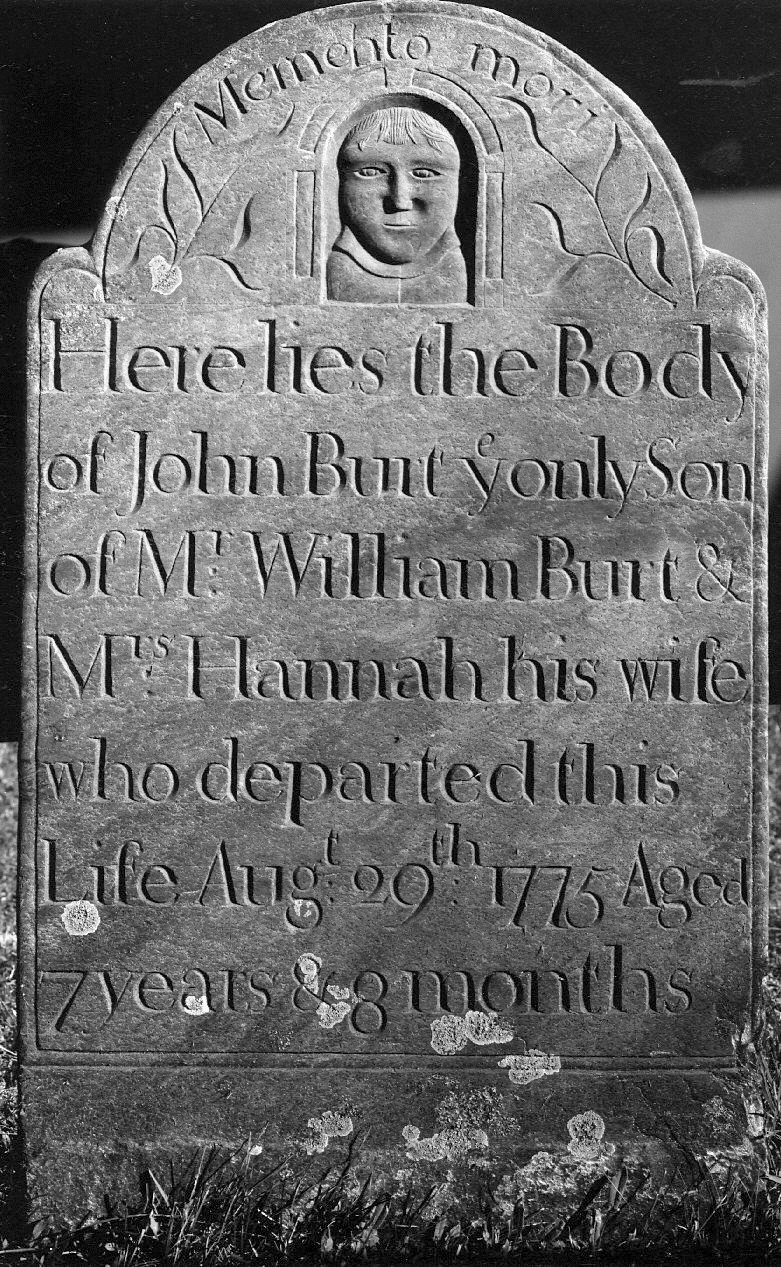 Memento mori
Here lies the Body
of John Burt yᵉ only Son
of Mʳ. William Burt &
Mʳˢ. Hannah his wife
who departed this
Life Augᵗ. 29ᵗʰ. 1775 Aged
7 years & 8 months